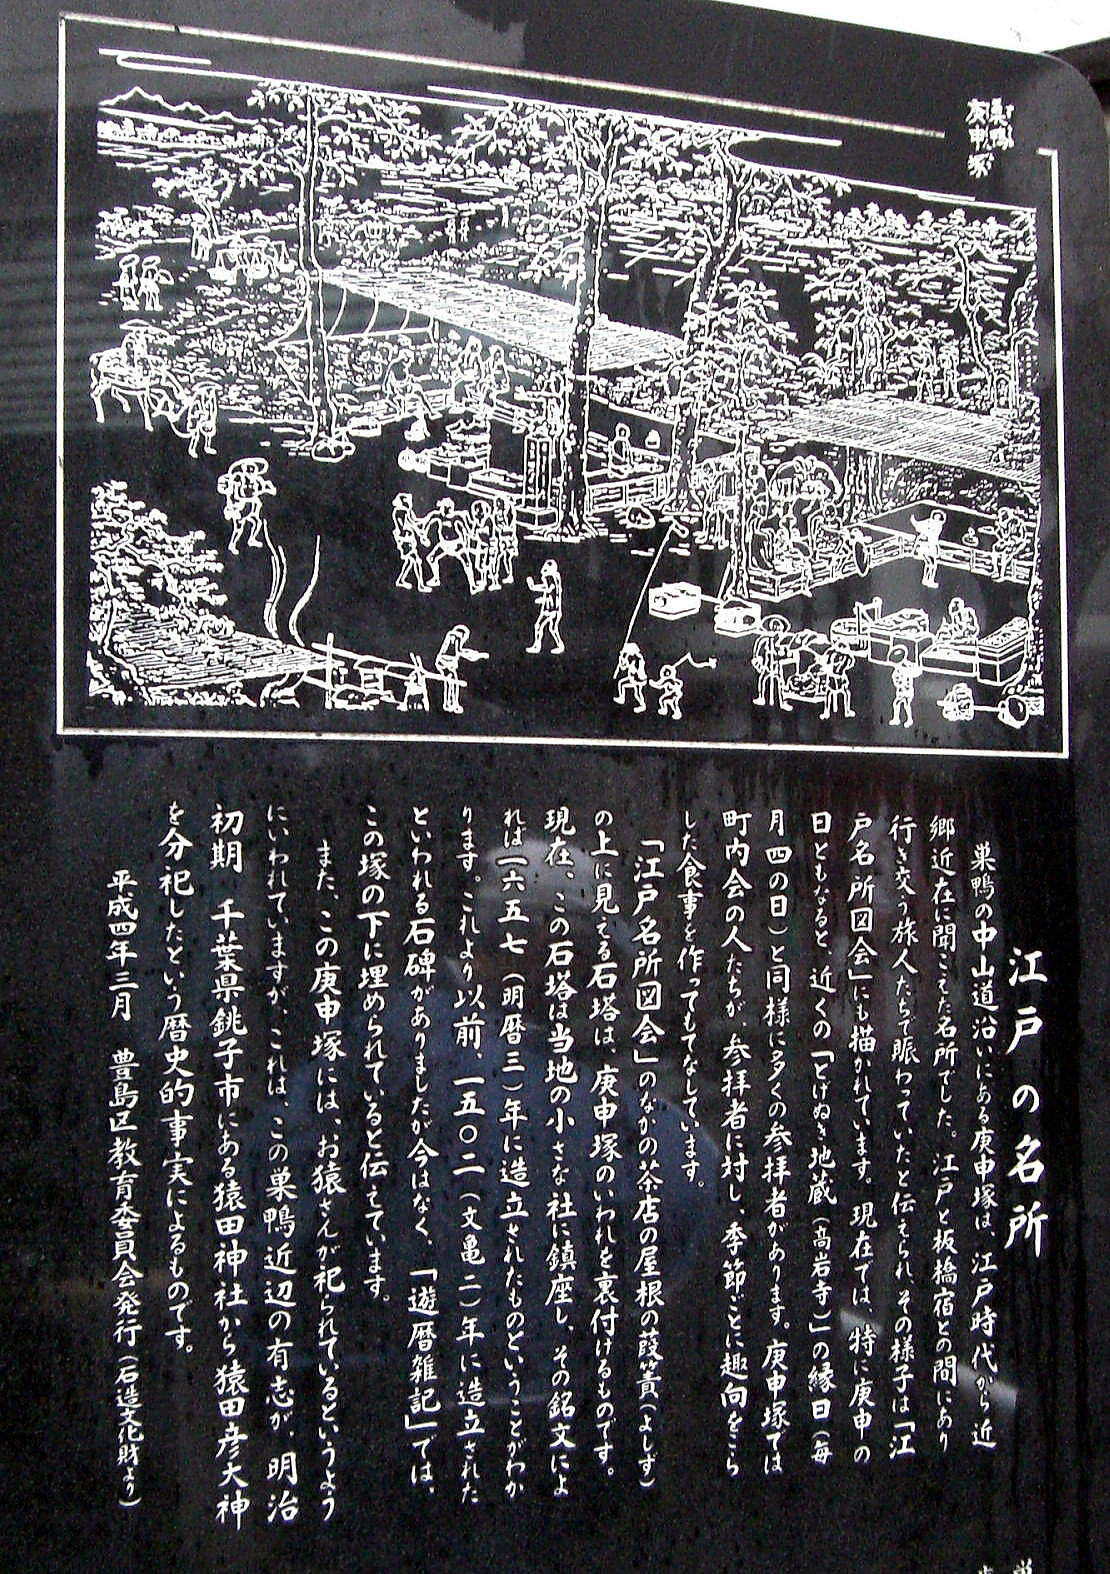 巣鴨
庚申塚
江戸の名所
巣鴨の中山道沿いにある庚申塚は、江戸時代から近
郷近在に聞こえた名所でした。江戸と板橋宿との間にあり
行き交う旅人たちで賑わっていたと伝えられ、その様子は「江
戸名所図会」にも描かれています。現在では、特に庚申の
日ともなると、近くの「とげぬき地蔵(高岩寺)」の縁日(毎
月四の日)と同様に多くの参拝者があります。庚申塚では
町内会の人たちが、参拝者に対し、季節ごとに趣向をこら
した食事を作ってもてなしています。
「江戸名所図会」のなかの茶店の屋根の葭簀(よしず)
の上に見える石塔は、庚申塚のいわれを裏付けるものです。
現在、この石塔は当地の小さな社に鎮座し、その銘文によ
れば一六五七(明暦三)年に造立されたものということがわか
ります。これより以前、一五〇二(文亀二)年に造立された
といわれる石碑がありましたが今はなく、「遊暦雑記」では、
この塚の下に埋められていると伝えています。
また、この庚申塚には、お猿さんが祀られているというよう
にいわれていますが、これは、この巣鴨近辺の有志が、明治
初期、千葉県銚子市にある猿田神社から猿田彦大神
を分祀したという歴史的事実によるものです。
平成四年三月 豊島区教育委員会発行(石造文化財より)